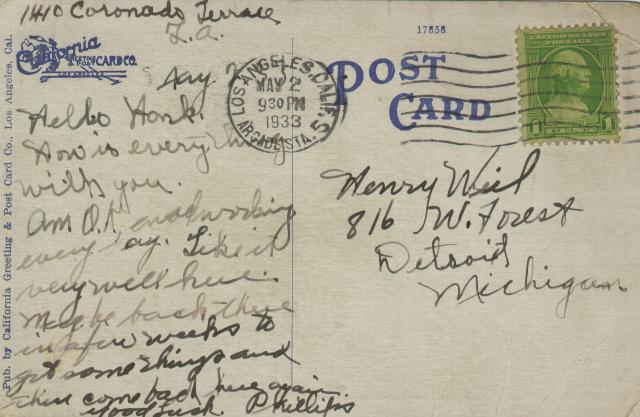 1410 Coronado Terrace
L.A.
17858
California
POST CARD CO.
LOS ANGELES
POST
CARD
LOS ANGELES, CALIF.
MAY 2
930 PM
1933
ARCADE STA.
S.
UNITED STATES POSTAGE
1 1
May 2
Hello Hank.
How is everything
with you.
Am O.K. and working
every day. Like it
very well here.
Maybe back there
in a few weeks to
get some things and
then come back here again
Good luck Phillips
Henry Weil
816 W. Forest
Detroit
Michigan
Pub. by California Greeting & Post Card Co., Los Angeles, Cal.